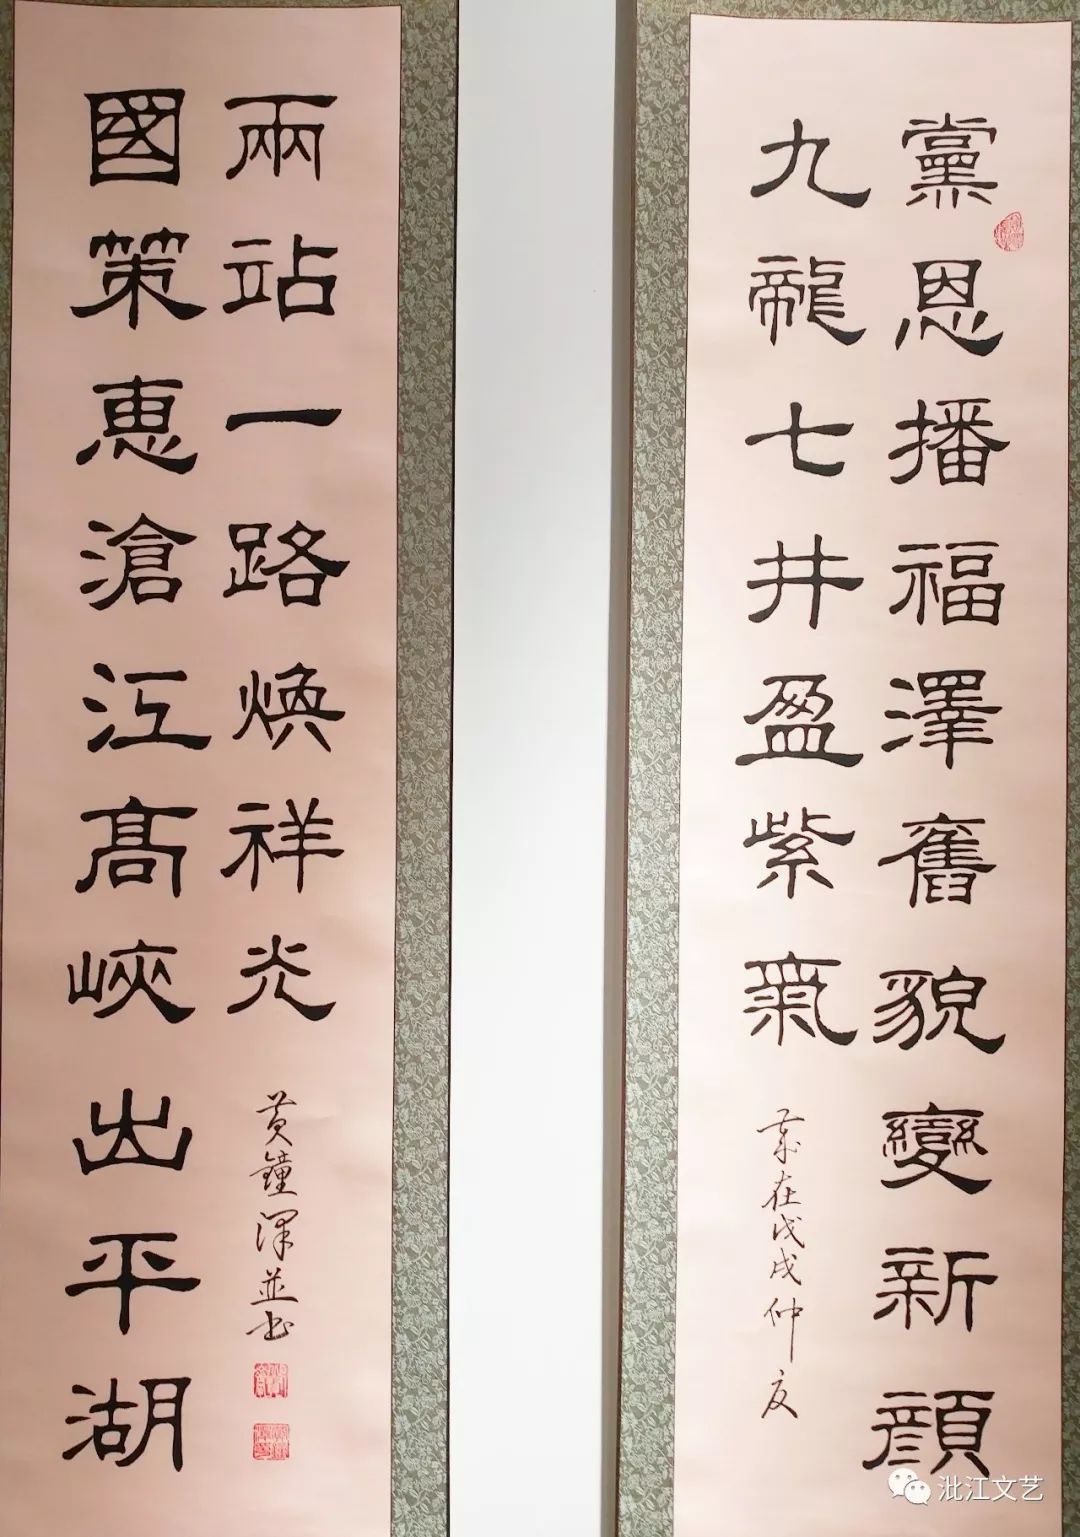 黨恩播福澤舊貌變新顔
九龍七井盈紫氣
歲在戊戌仲夏
國策恵滄江髙峽出平湖
兩站一路煥祥光
黄鐘澤並书
沘江文艺